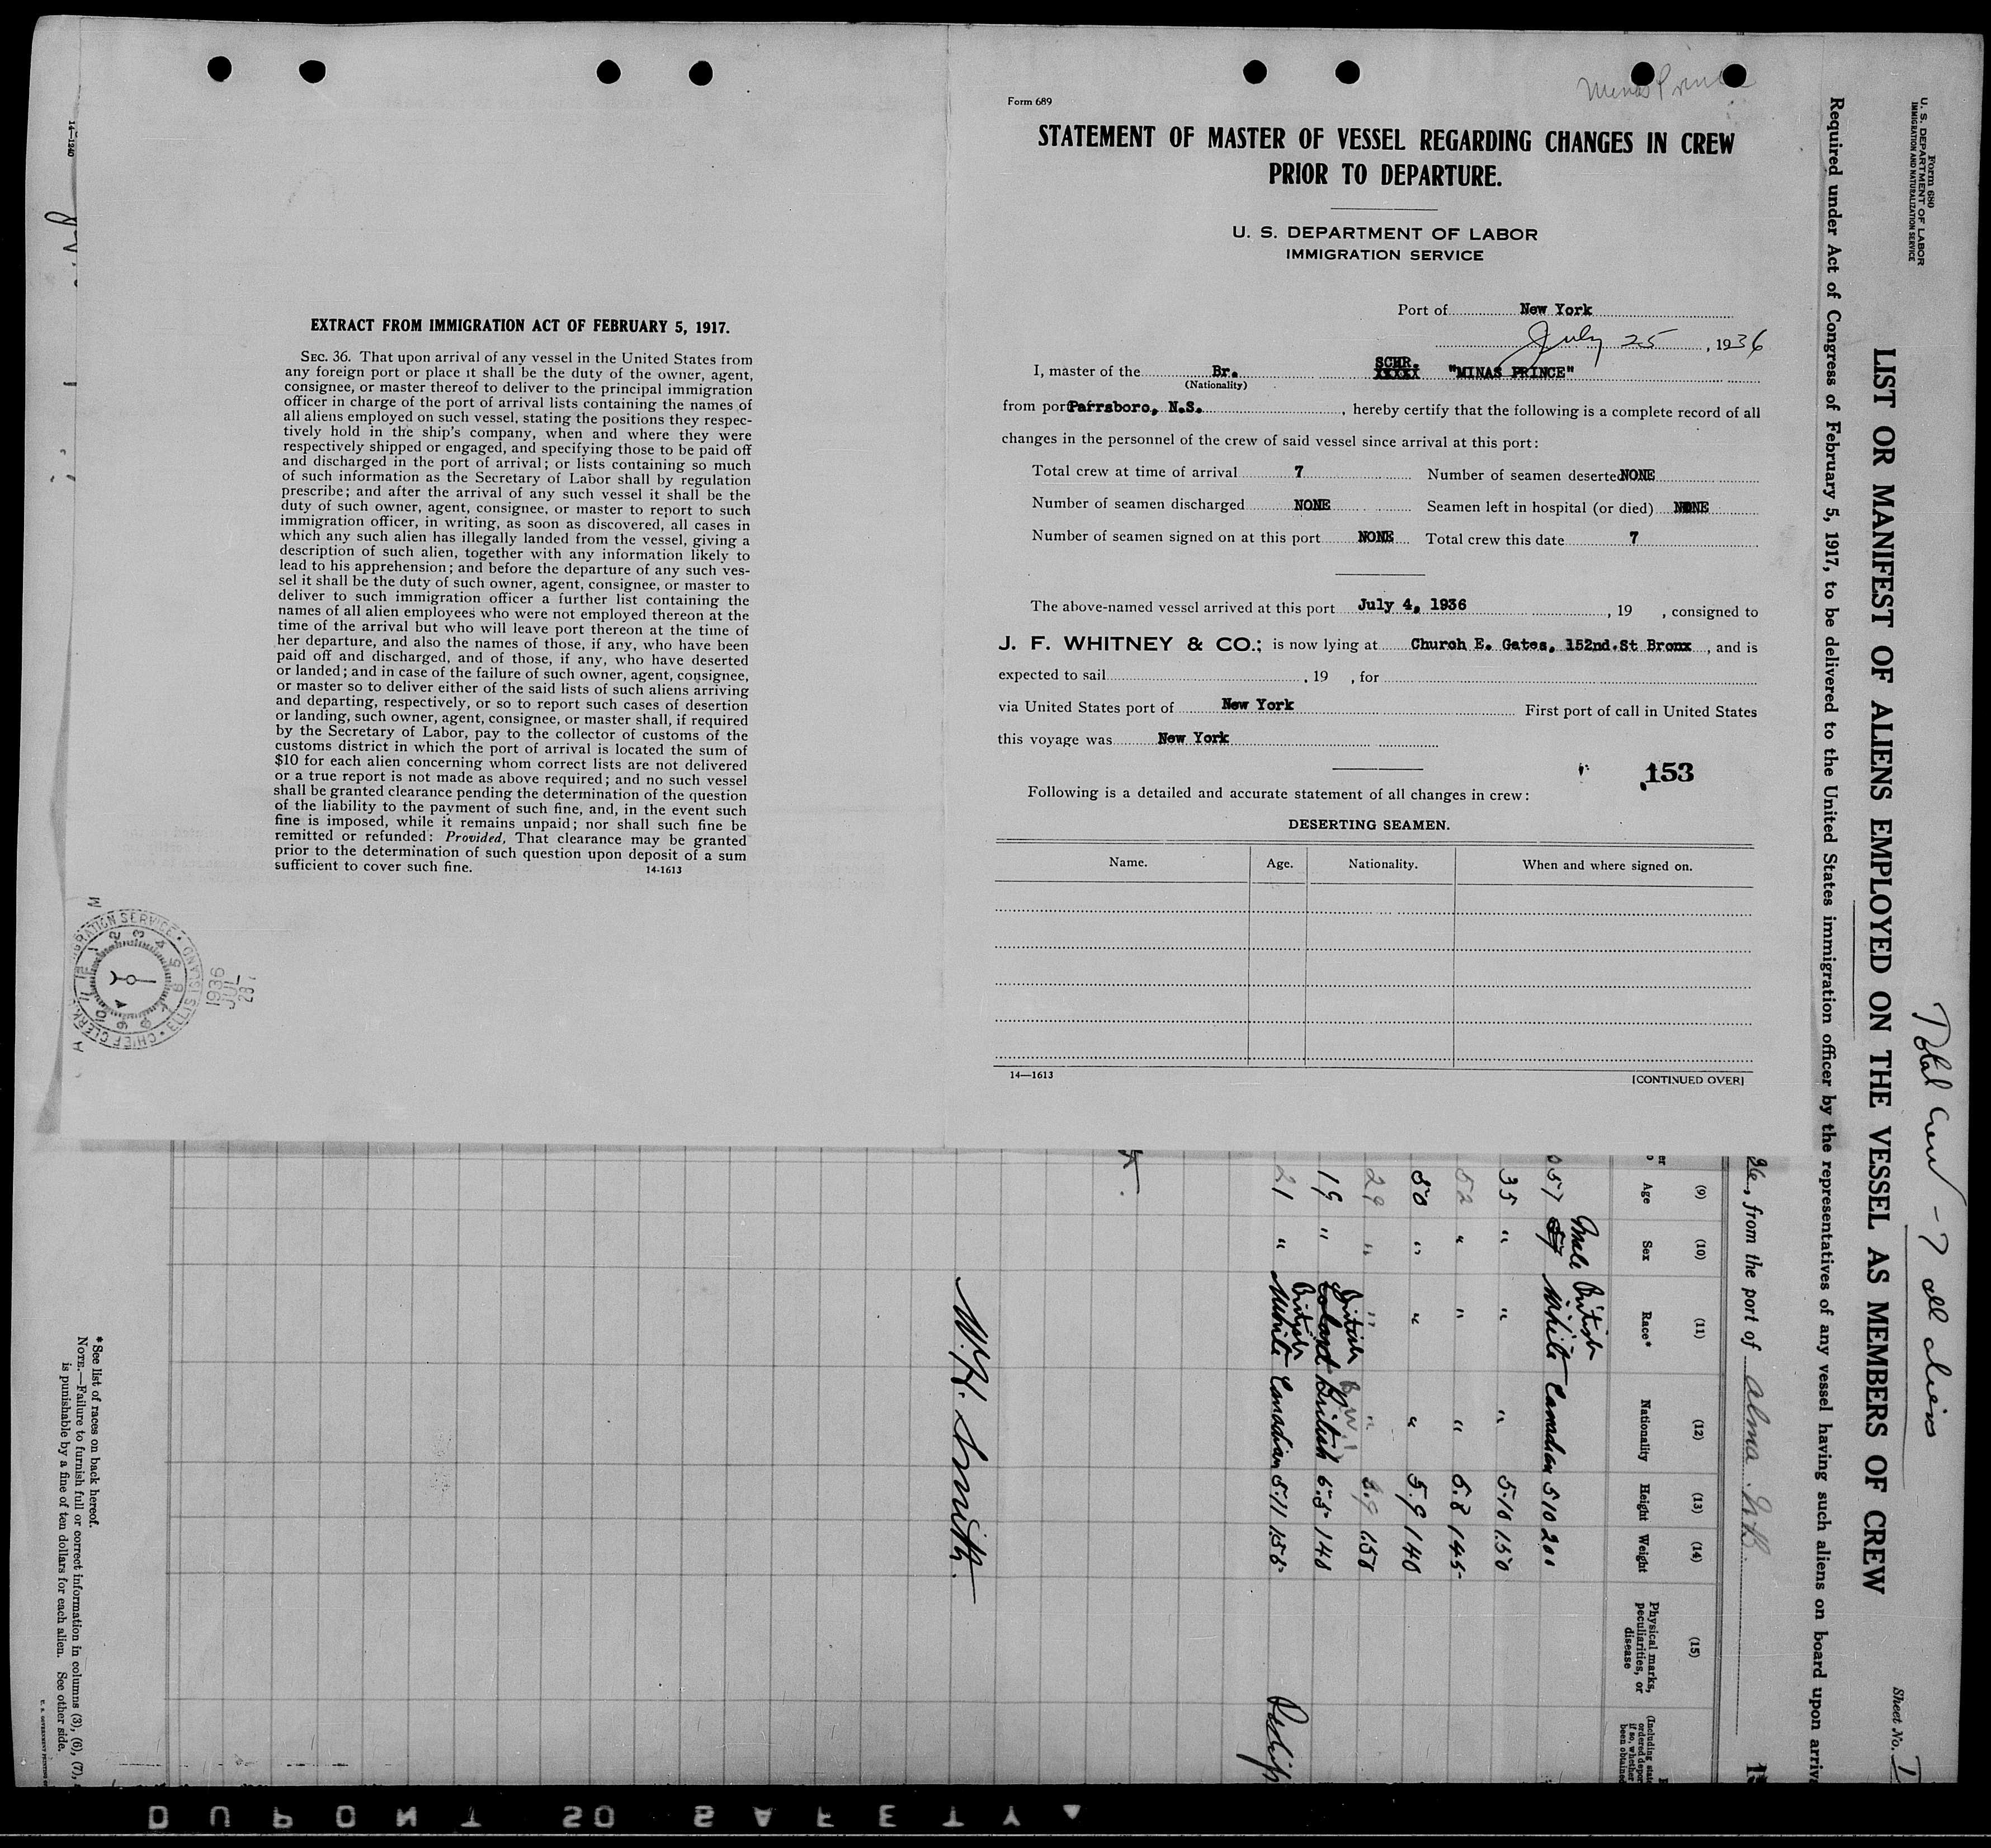 14—1240
EXTRACT FROM IMMIGRATION ACT OF FEBRUARY 5, 1917.
SEC. 36. That upon arrival of any vessel in the United States from
any foreign port or place it shall be the duty of the owner, agent,
consignee, or master thereof to deliver to the principal immigration
officer in charge of the port of arrival lists containing the names of
all aliens employed on such vessel, stating the positions they respec-
tively hold in the ship's company, when and where they were
respectively shipped or engaged, and specifying those to be paid off
and discharged in the port of arrival; or lists containing so much
of such information as the Secretary of Labor shall by regulation
prescribe; and after the arrival of any such vessel it shall be the
duty of such owner, agent, consignee, or master to report to such
immigration officer, in writing, as soon as discovered, all cases in
which any such alien has illegally landed from the vessel, giving a
description of such alien, together with any information likely to
lead to his apprehension; and before the departure of any such ves-
sel it shall be the duty of such owner, agent, consignee, or master to
deliver to such immigration officer a further list containing the
names of all alien employees who were not employed thereon at the
time of the arrival but who will leave port thereon at the time of
her departure, and also the names of those, if any, who have been
paid off and discharged, and of those, if any, who have deserted
or landed; and in case of the failure of such owner, agent, consignee,
or master so to deliver either of the said lists of such aliens arriving
and departing, respectively, or so to report such cases of desertion
or landing, such owner, agent, consignee, or master shall, if required
by the Secretary of Labor, pay to the collector of customs of the
customs district in which the port of arrival is located the sum of
$10 for each alien concerning whom correct lists are not delivered
or a true report is not made as above required; and no such vessel
shall be granted clearance pending the determination of the question
of the liability to the payment of such fine, and, in the event such
fine is imposed, while it remains unpaid; nor shall such fine be
remitted or refunded: Provided, That clearance may be granted
prior to the determination of such question upon deposit of a sum
sufficient to cover such fine.
14-1613
CHIEF CLERK ELLIS ISLAND
1936
JUL
28
Minas Prince
Form 689
STATEMENT OF MASTER OF VESSEL REGARDING CHANGES IN CREW
PRIOR TO DEPARTURE.
U. S. DEPARTMENT OF LABOR
IMMIGRATION SERVICE
Port of New York
July 25, 1936
I, master of the Br. SCHR. XXXXX "MINAS PRINCE"
(Nationality)
from port Parrsboro, N.S., hereby certify that the following is a complete record of all
changes in the personnel of the crew of said vessel since arrival at this port:
Total crew at time of arrival 7 Number of seamen deserted NONE
Number of seamen discharged NONE Seamen left in hospital (or died) NONE
Number of seamen signed on at this port NONE Total crew this date 7
The above-named vessel arrived at this port July 4, 1936, 19 , consigned to
J. F. WHITNEY & CO.; is now lying at Church E. Gates, 152nd.St Bronx, and is
expected to sail , 19 , for
via United States port of New York First port of call in United States
this voyage was New York
153
Following is a detailed and accurate statement of all changes in crew:
DESERTING SEAMEN.
Name. Age. Nationality. When and where signed on.
14—1613
[CONTINUED OVER]
Form 680
U. S. DEPARTMENT OF LABOR
IMMIGRATION AND NATURALIZATION SERVICE
Total Crew - 7 all aliens
LIST OR MANIFEST OF ALIENS EMPLOYED ON THE VESSEL AS MEMBERS OF CREW
Sheet No. 1
Required under Act of Congress of February 5, 1917, to be delivered to the United States immigration officer by the representatives of any vessel having such aliens on board upon arriv
, from the port of Alma N.B.
(9) (10) (11) (12) (13) (14) (15)
Age Sex Race* Nationality Height Weight Physical marks, peculiarities, or disease
Male British
57 White Canadian 5 10 201
35 " " " 5.10 150
52 " " " 5.8 145
50 " " " 5.9 140
29 " " " 5.9 150
British
19 " Colored British 5.5 140
British
21 " White Canadian 5.11 155
W.H. Smith
*See list of races on back hereof.
NOTE.—Failure to furnish full or correct information in columns (3), (6), (7),
is punishable by a fine of ten dollars for each alien. See other side.
DUPONT SO SAFETY